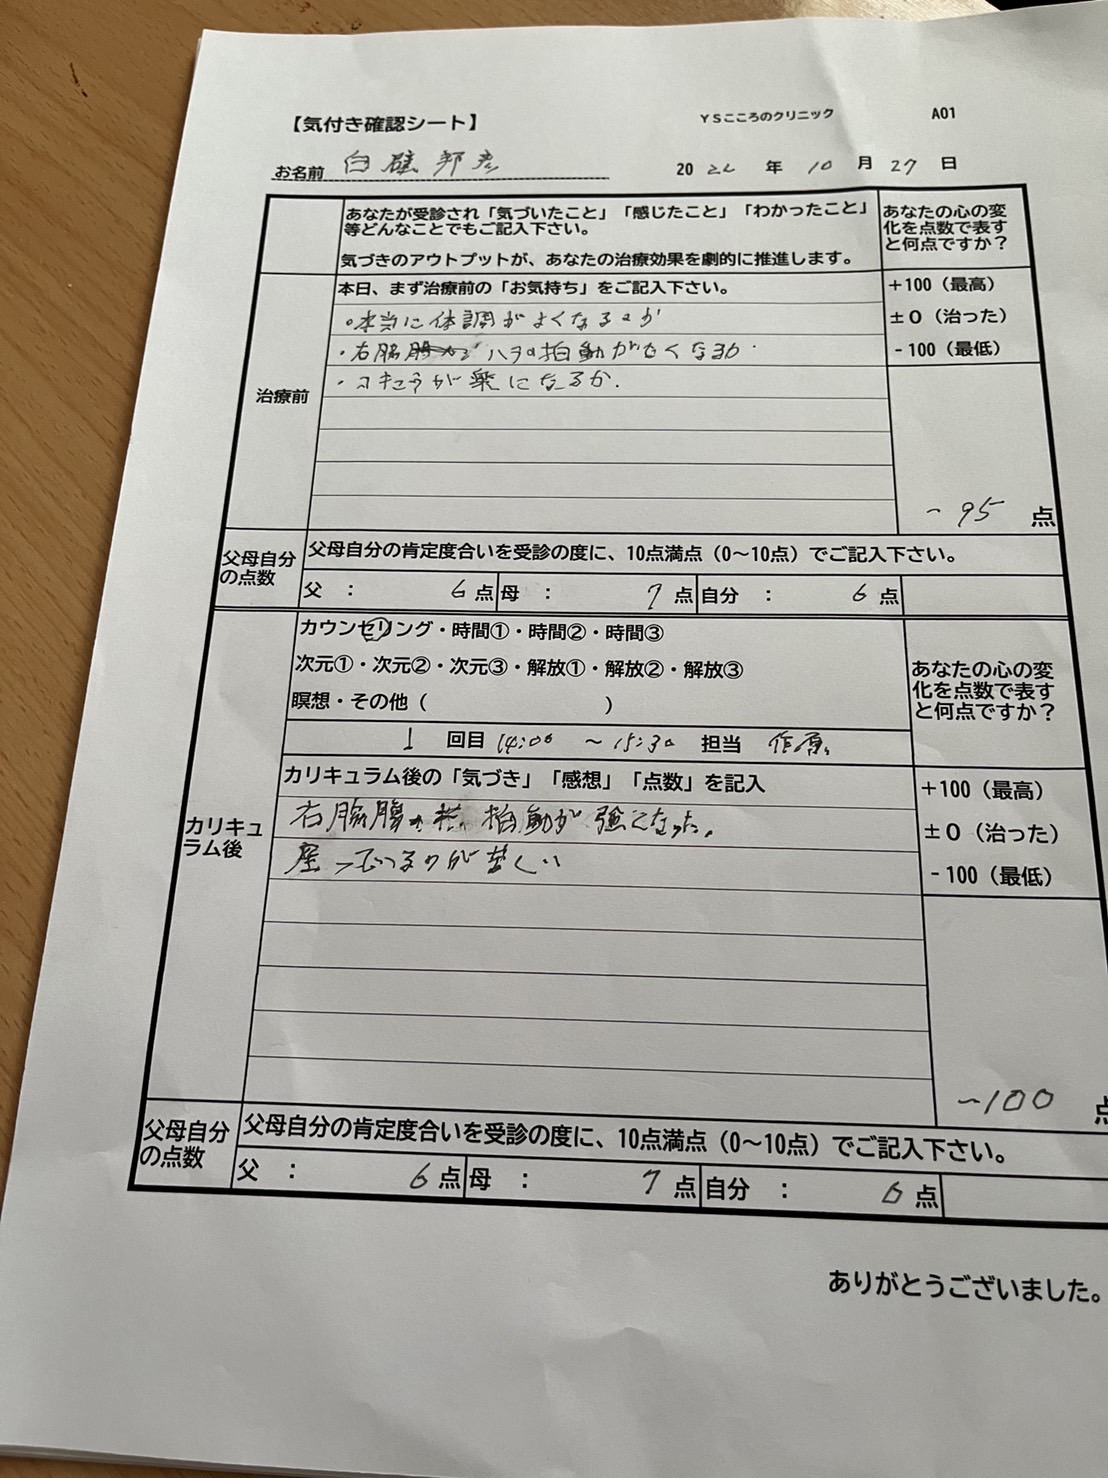 【気付き確認シート】 YSこころのクリニック A01
お名前 白 邦彦 2022 年 10 月 27 日
あなたが受診され「気づいたこと」「感じたこと」「わかったこと」
等どんなことでもご記入下さい。
気づきのアウトプットが、あなたの治療効果を劇的に推進します。
あなたの心の変
化を点数で表す
と何点ですか？
治療前
本日、まず治療前の「お気持ち」をご記入下さい。
・本当に体調がよくなるのか
・右脇 ハラの拍動がなくなるか
・コキュウが楽になるか.
+100（最高）
±0（治った）
-100（最低）
-95 点
父母自分
の点数
父母自分の肯定度合いを受診の度に、10点満点（0～10点）でご記入下さい。
父 ： 6 点 母 ： 7 点 自分 ： 6 点
カリキュ
ラム後
カウンセリング・時間①・時間②・時間③
次元①・次元②・次元③・解放①・解放②・解放③
瞑想・その他（ ）
1 回目 14:00 ～15:30 担当
あなたの心の変
化を点数で表す
と何点ですか？
カリキュラム後の「気づき」「感想」「点数」を記入
右脇腹の 拍動が強くなった。
座っているのが苦しい
+100（最高）
±0（治った）
-100（最低）
-100 点
父母自分
の点数
父母自分の肯定度合いを受診の度に、10点満点（0～10点）でご記入下さい。
父 ： 6 点 母 ： 7 点 自分 ： 6 点
ありがとうございました。